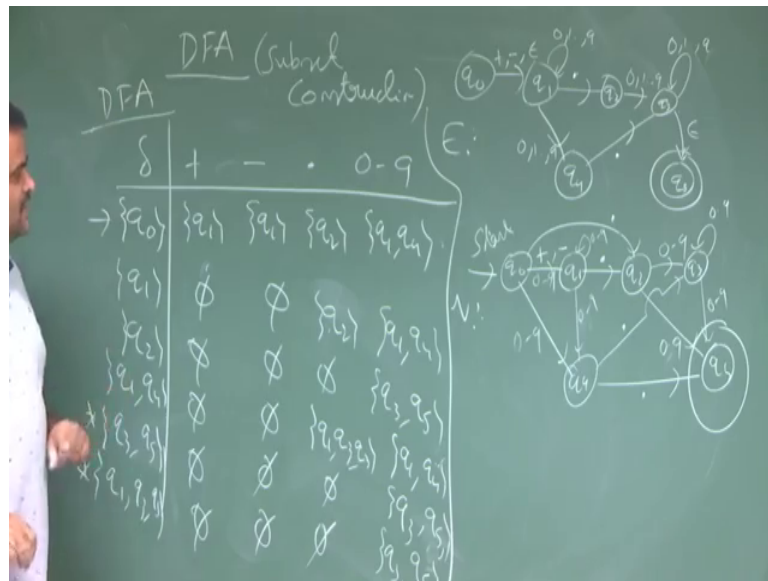 DFA (Subset
Construction)
DFA
δ + - . 0-9
→ {q0} {q1} {q1} {q2} {q1,q4}
{q1} ∅ ∅ {q2} {q1,q4}
{q2} ∅ ∅ ∅ {q3,q5}
{q1,q4} ∅ ∅ {q1,q2,q3} {q1,q4}
*{q3,q5} ∅ ∅ ∅ {q3,q5}
*{q1,q2,q3} ∅ ∅ ∅
E:
q0 +,-,ε q1 0,1..9 . q2 0,1..9 q3 0,1,9
0,1,9 q4 . ε q5
N:
Start q0 +,- 0-9 q1 0-9 . q2 0-9 q3 0-9
. 0-9 q4 0-9 . 0,9 0-9
.